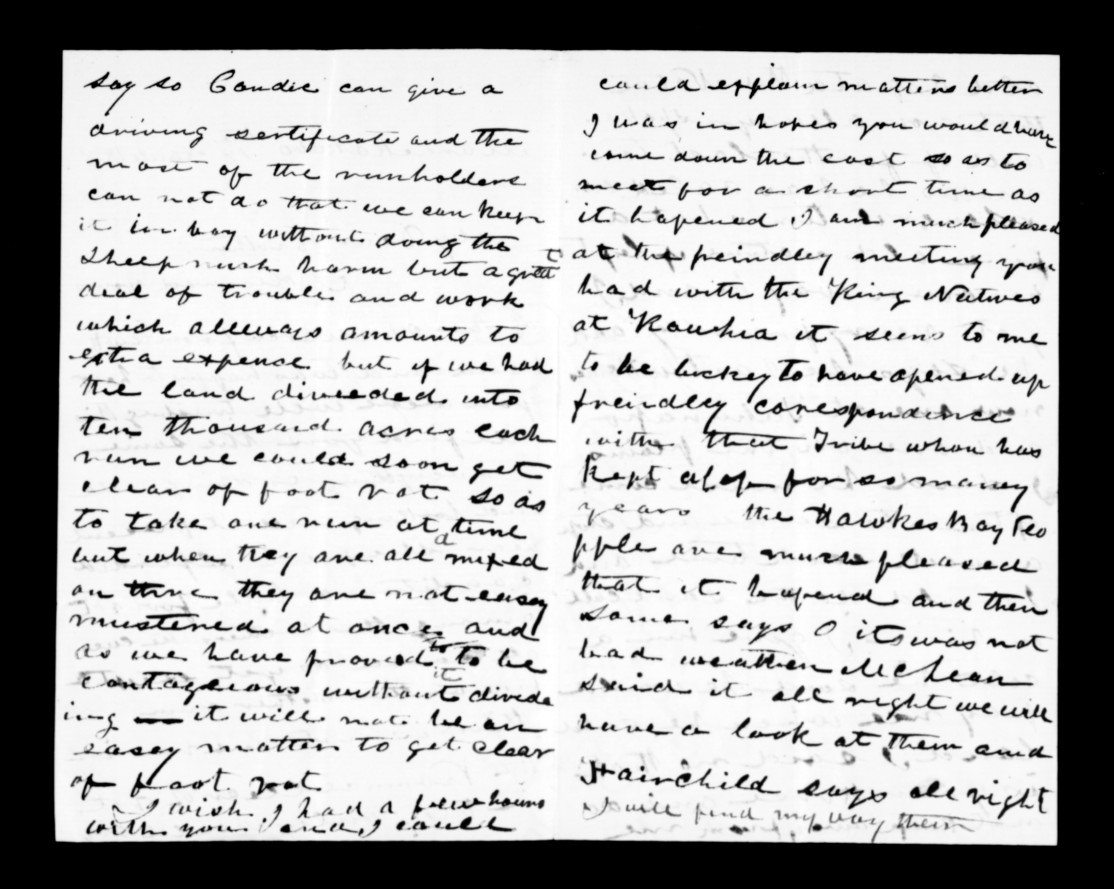 say so Condie can give a
driving sertificate and the
most of the runholders
can not do that we can keep
it in bay without doing the
Sheep much harm but a grett
deal of trouble and work
which allways amounts to
extra expense but if we had
the land diveeded into
ten thousand acres each
run we could soon get
clear of foot rot so as
to take one run at a time
but when they are all mixed
on thre they are not easey
mustered at once and
as we have proved it to be
contageious without divide
ing it will not be an
easey matter to get clear
of foot rot
I wish I had a few hours
with you and I could
could explain matters better
I was in hopes you would have
come down the cost so as to
meet for a short time as
it hapened I am much pleased
at the freindley meeting you
had with the King Natives
at Kawhia it seems to me
to be luckey to have opened up
freindley corespondence
with that Tribe whou has
kept alof for so maney
years the Hawkes Bay Peo
pple are much pleased
that it hapend and then
some says O its was not
bad weather McLean
said it all right we will
have a look at them and
Fairchild says all right
I will find my way them